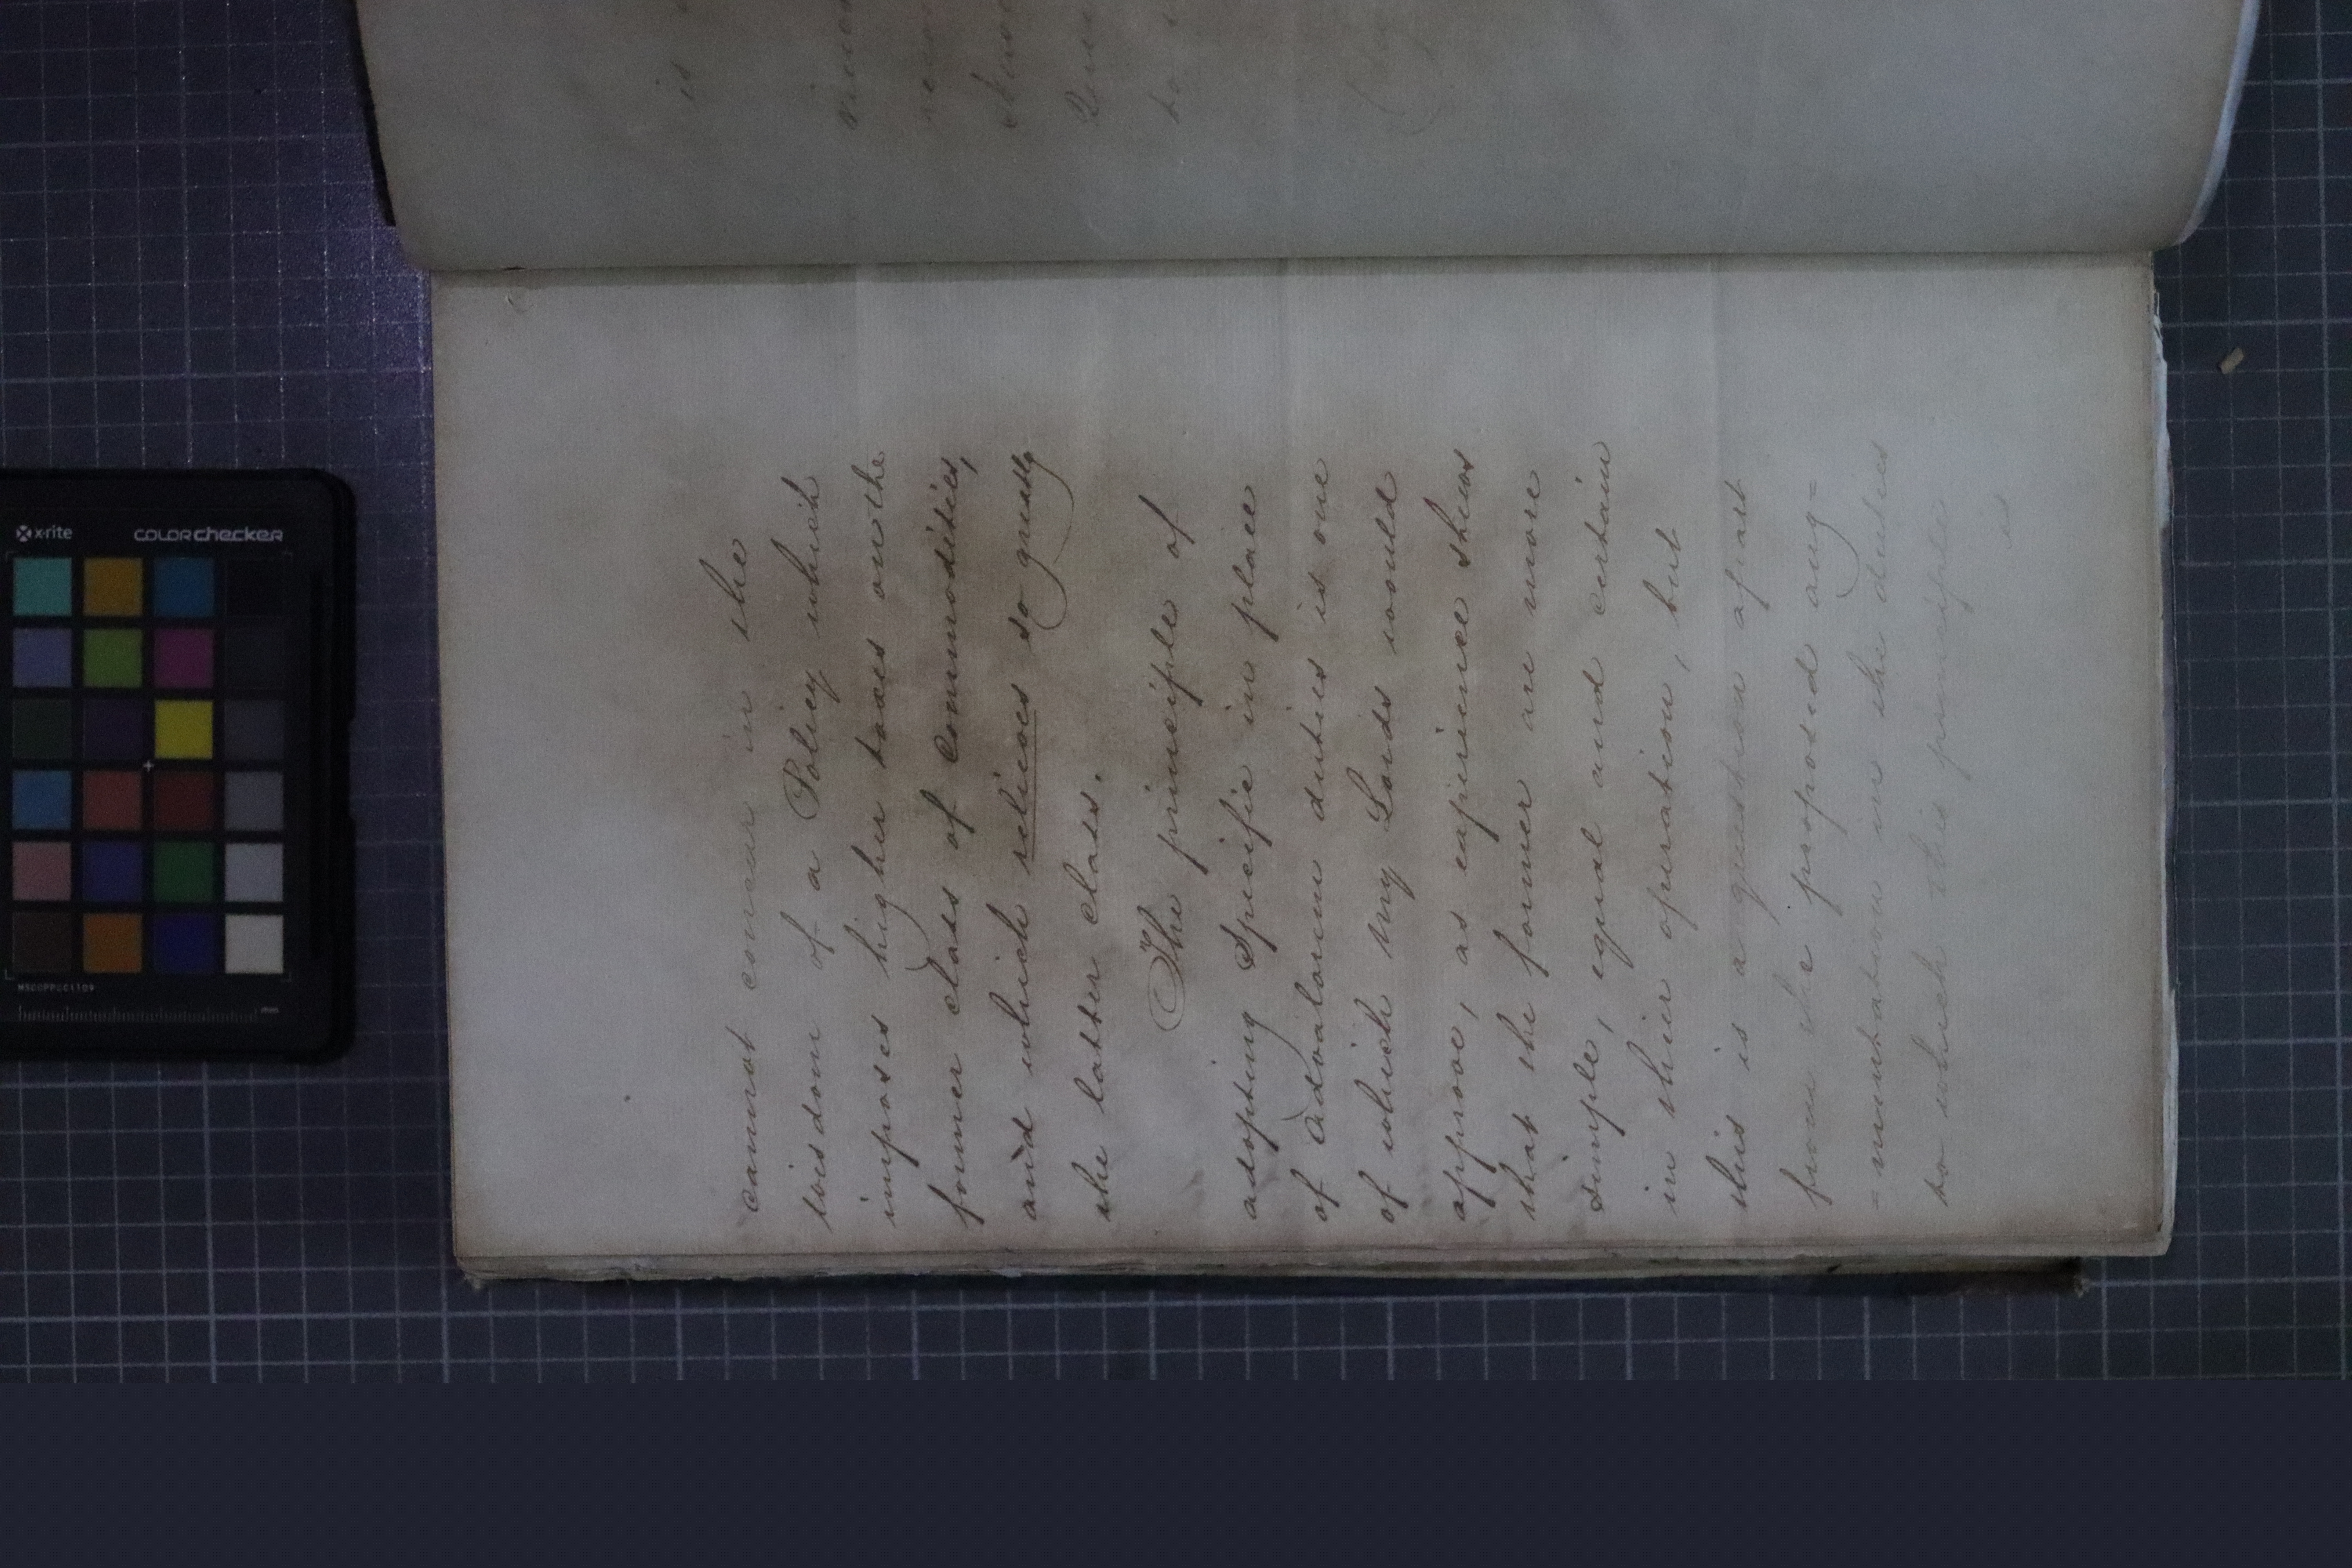 cannot concur in the
wisdom of a Policy which
imposes higher taxes on the
former class of Commodities,
and which relieves so greatly
the latter class.
The principle of
adopting Specific in place
of Advalorem duties is one
of which My Lords would
approve, as experience shews
that the former are more
simple, equal and certain
in their operation, but
this is a question apart
from the proposed aug=
=mentation in the duties
to which this principle
is
is
to
x-rite
colorchecker